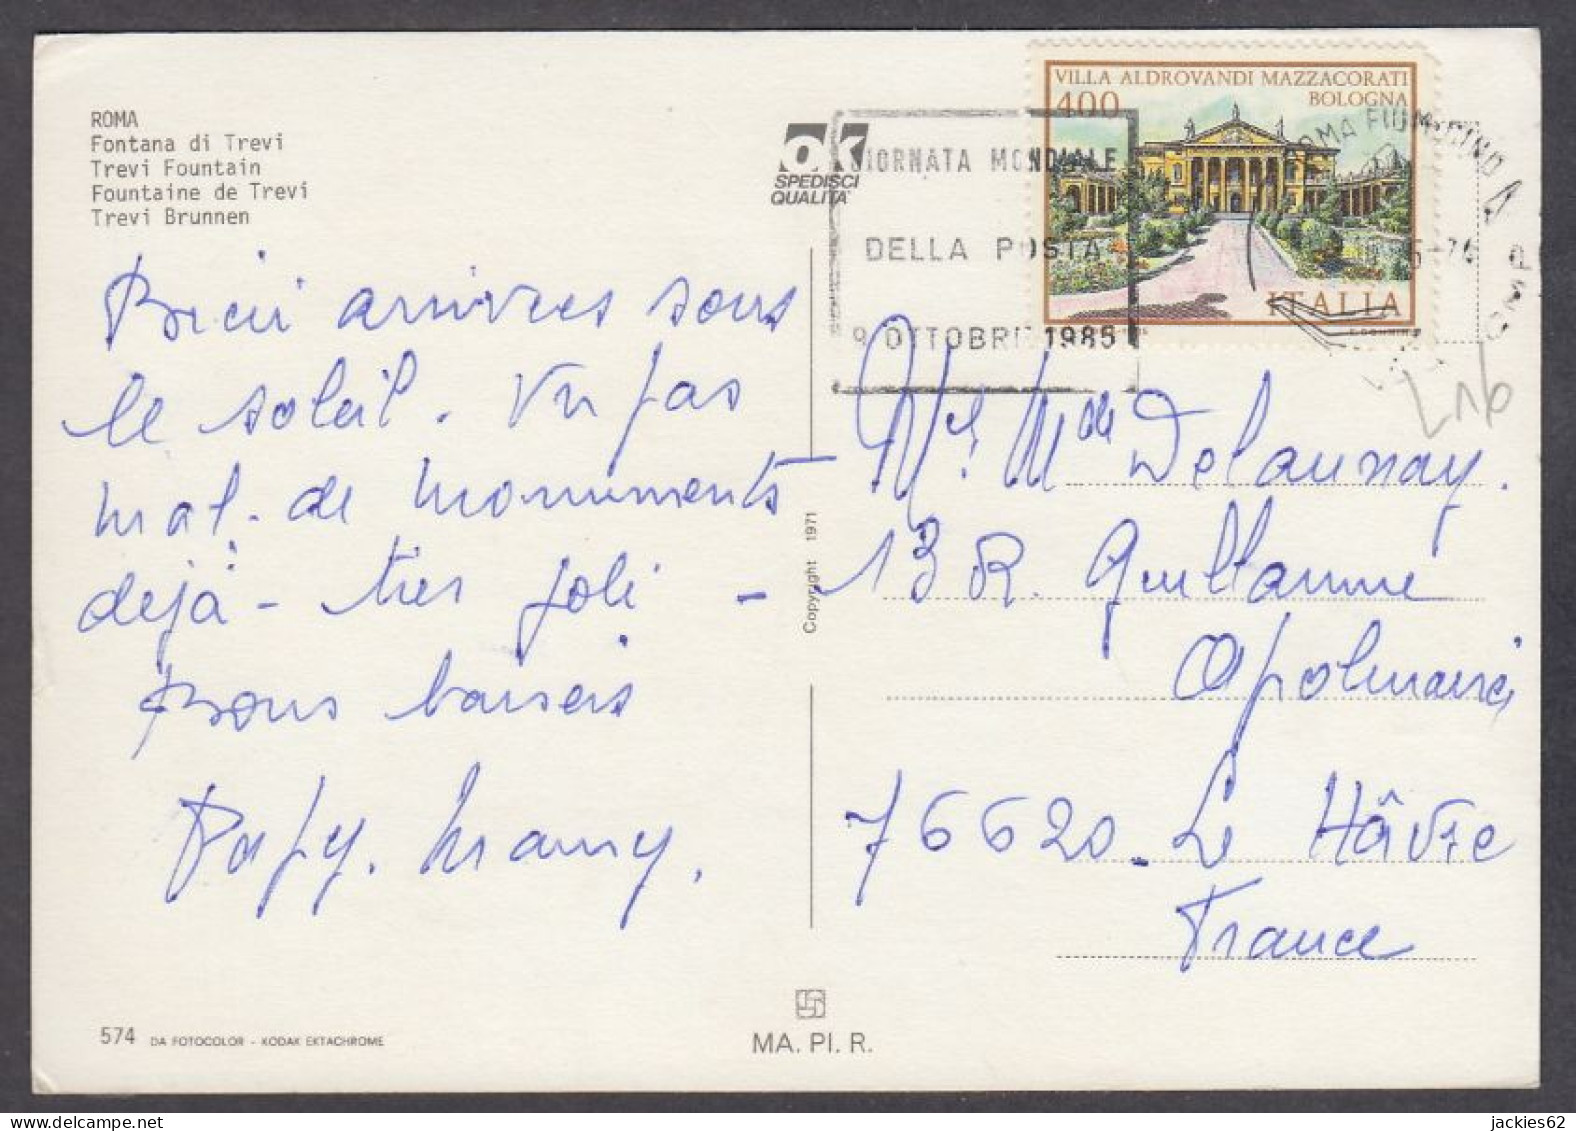 ROMA
Fontana di Trevi
Trevi Fountain
Fountaine de Trevi
Trevi Brunnen
Bien arrivées sous
le soleil. Vu pas
mal. de monuments
déjà - très joli -
Bons baisers
Papy. Mamy.
574 DA FOTOCOLOR - KODAK EKTACHROME
ok
SPEDISCI
QUALITA'
GIORNATA MONDIALE
DELLA POSTA
9 OTTOBRE 1985
VILLA ALDROVANDI MAZZACORATI
400 BOLOGNA
ITALIA
ROMA FIUMICINO
Copyright 1971
Mr. Mme Delaunay.
13 R. Guillaume
Apolinaire
76620. Le Hâvre
France
MA. PI. R.
jackies62